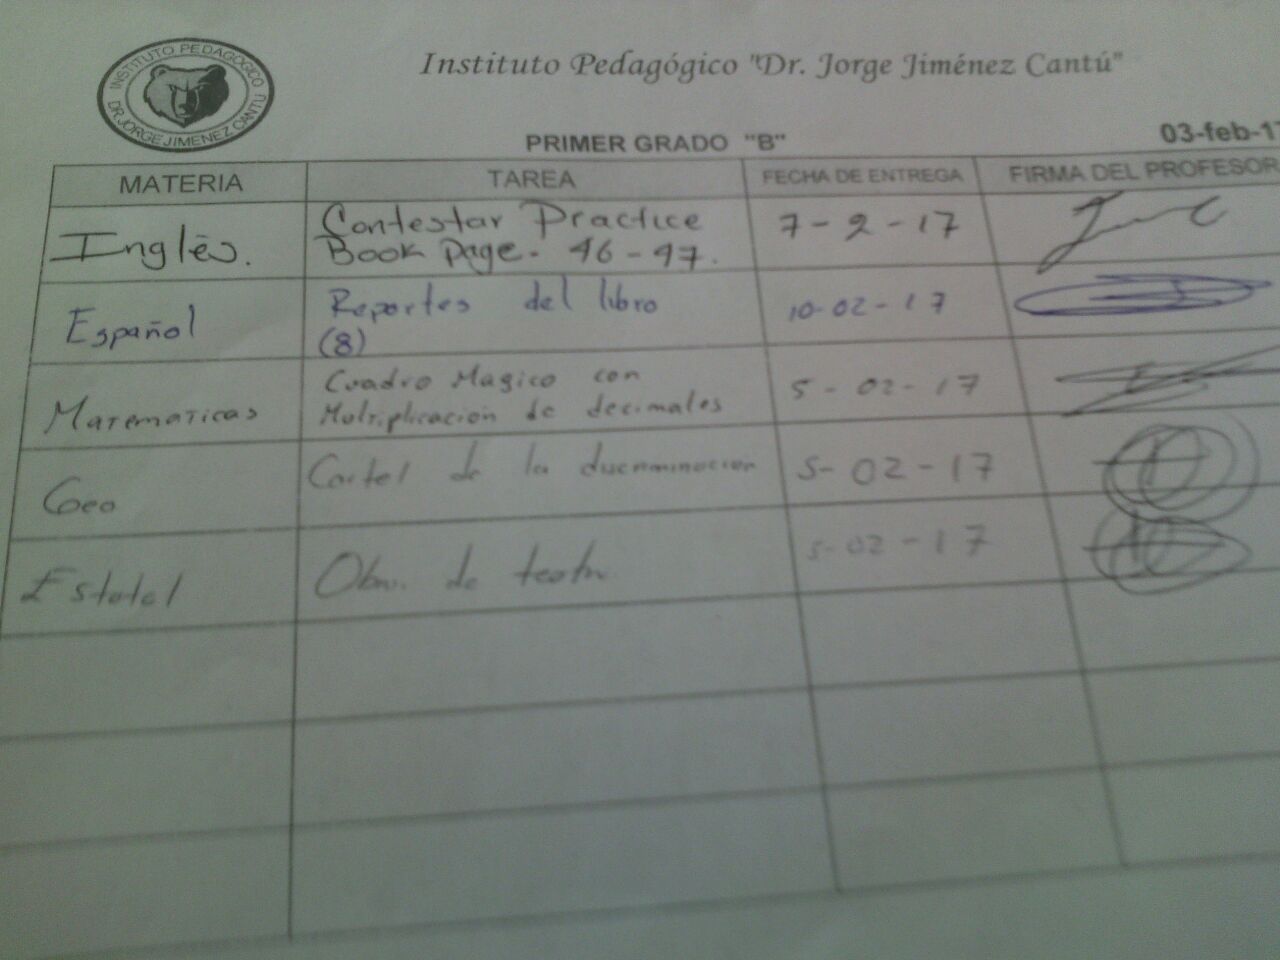 INSTITUTO PEDAGOGICO
DR. JORGE JIMENEZ CANTU
Instituto Pedagógico "Dr. Jorge Jiménez Cantú"
PRIMER GRADO "B"
03-feb-17
MATERIA TAREA FECHA DE ENTREGA FIRMA DEL PROFESOR
Inglés. Contestar Practice Book page. 46-47. 7-2-17
Español Reportes del libro (8) 10-02-17
Matematicas Cuadro Magico con Multiplicación de decimales 5-02-17
Geo Cartel de la discriminacion 5-02-17
Estatal de teatro 5-02-17